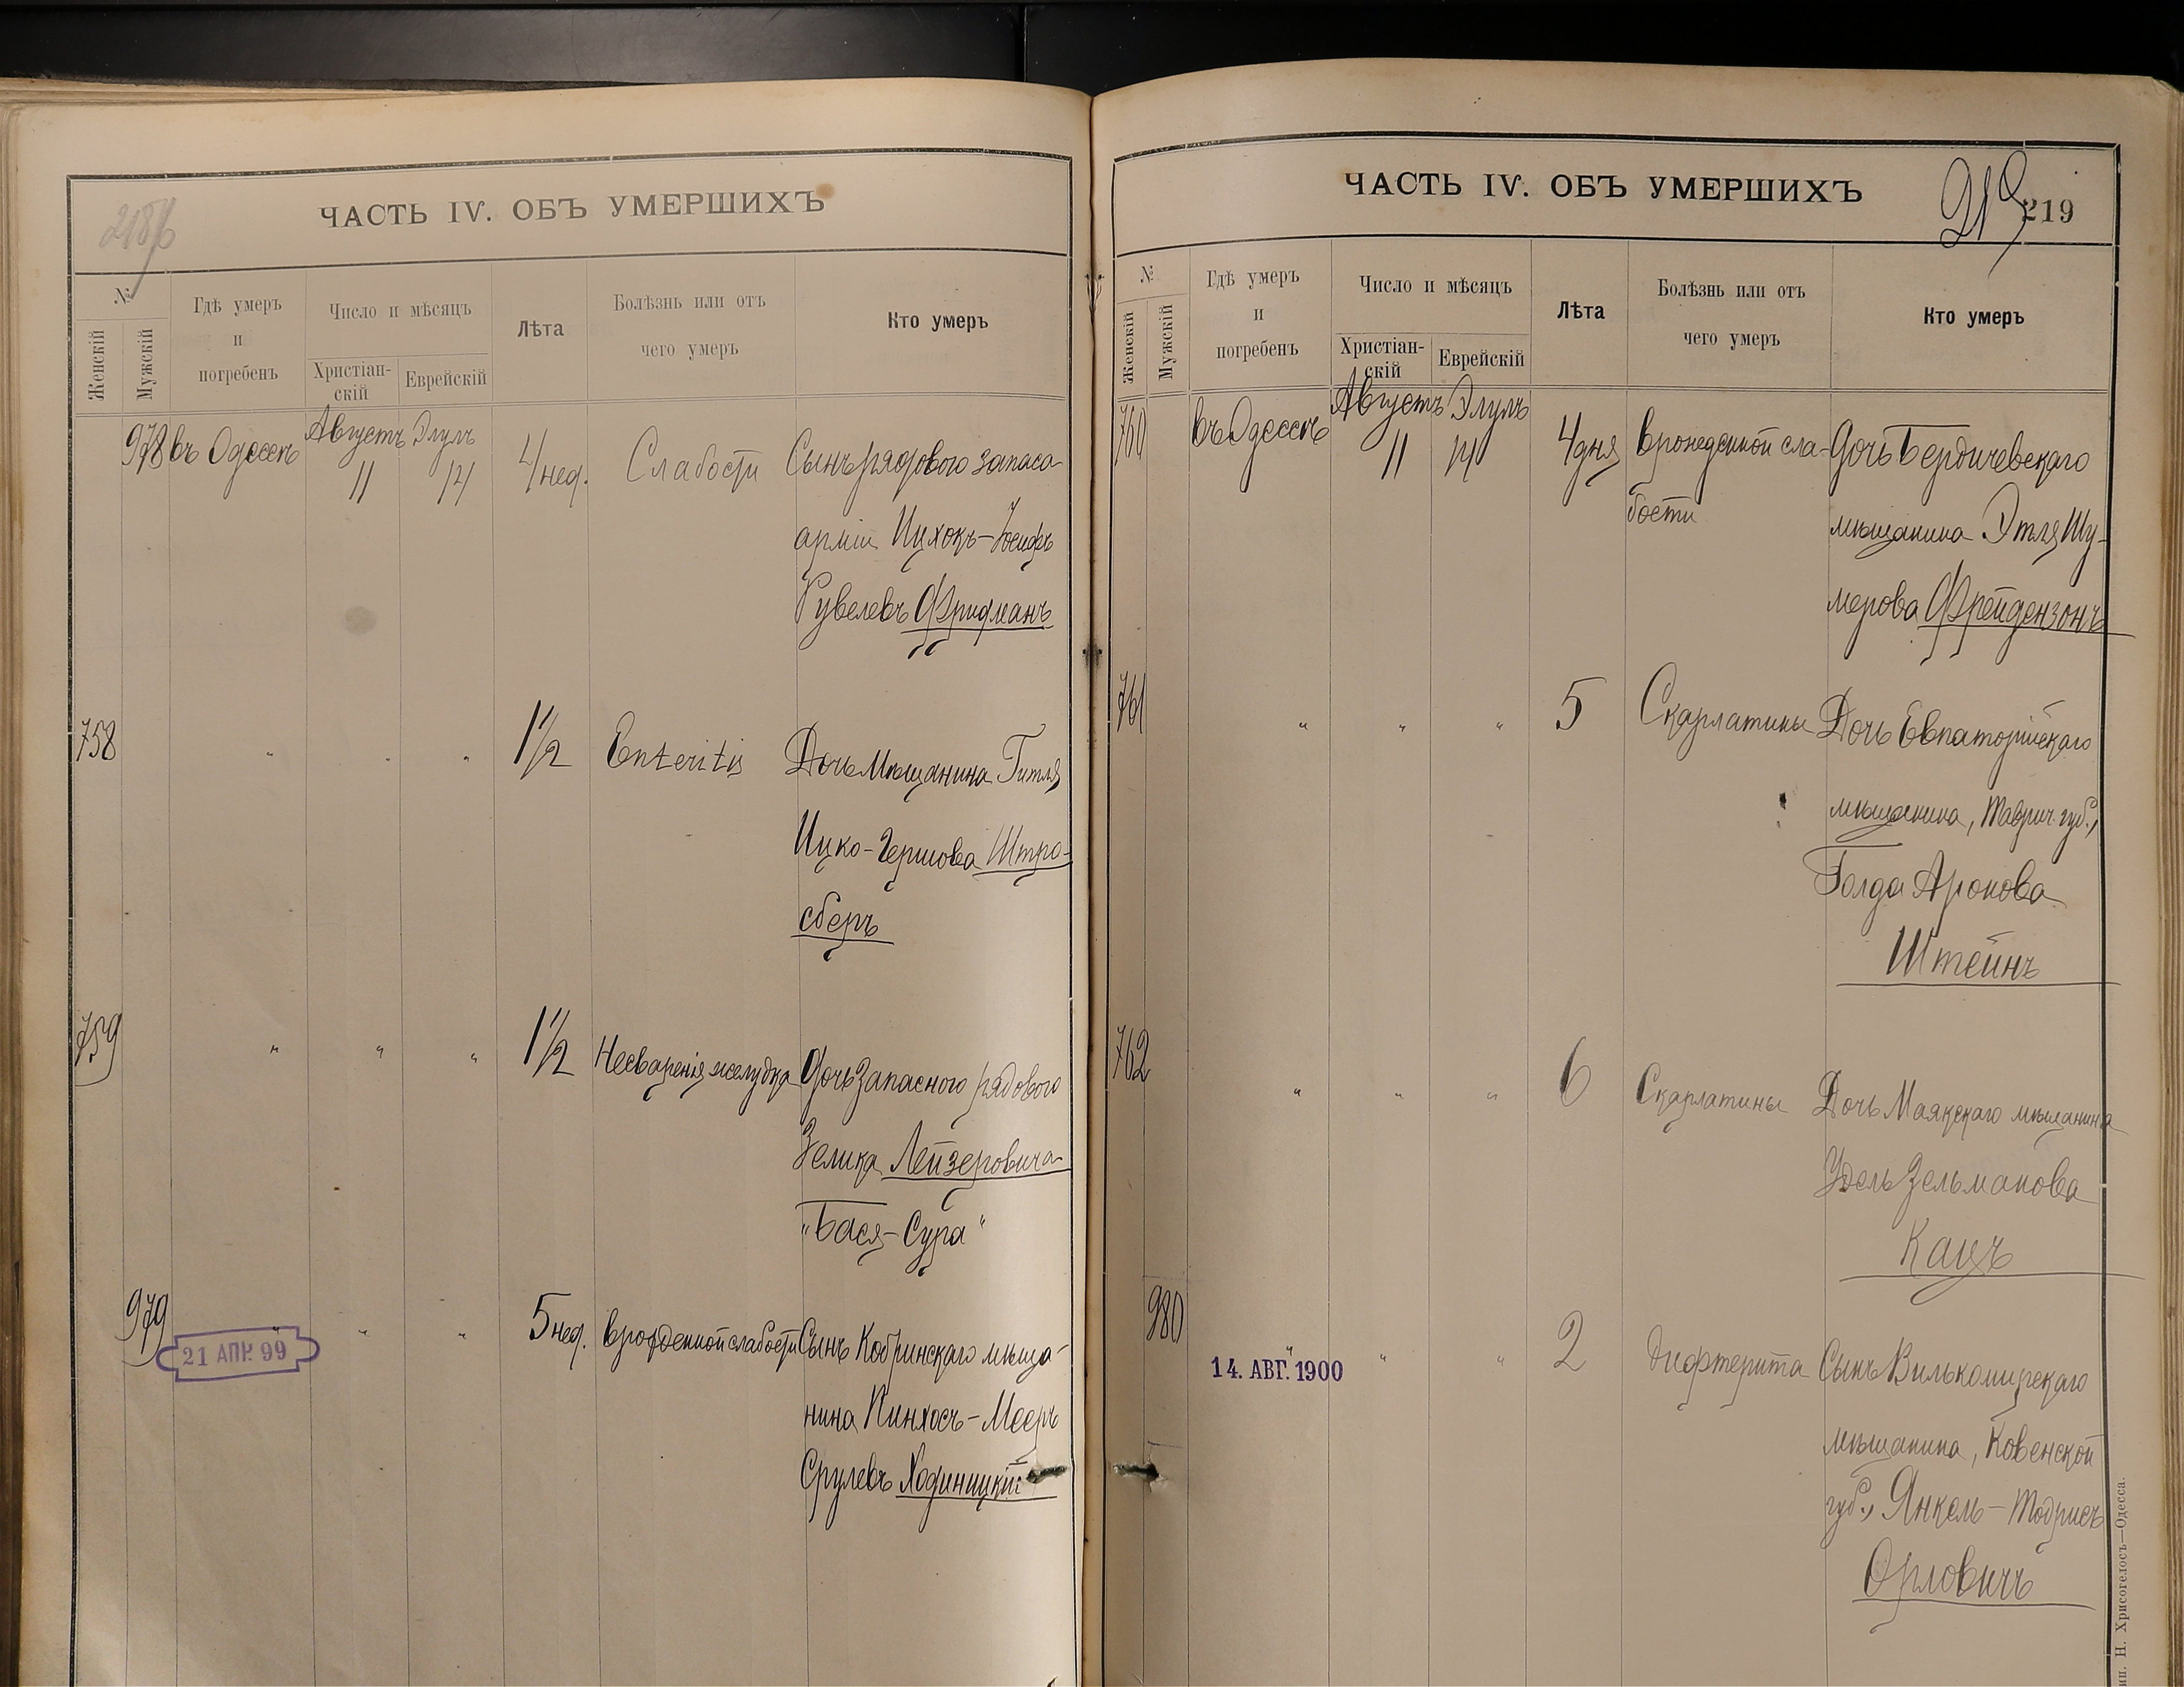 ЧАСТЬ IV. ОБЪ УМЕРШИХЪ
№
Женскій
Мужскій
Гдѣ умеръ
и
погребенъ
Число и мѣсяцъ
Христіан-
скій
Еврейскій
Лѣта
Болѣзнь или отъ
чего умеръ
Кто умеръ
978 въ Одессѣ Августъ 11 Элулъ 14 4 нед. Слабости Сынъ рядового запаса
арміи Ицхокъ-Іосифъ
Рувелевъ Фридманъ
758 " " " 1½ Enteritis Дочь Мѣщанина Гитля
Ицко-Гершова Штро-
сберъ
759 " " " 1½ Несваренія желудка Дочь запасного рядового
Зелика Лейзеровича
"Бася-Сура"
979 " " " 5 нед. врожденной слабости Сынъ Кобринскаго мѣща-
нина Пинхосъ-Мееръ
Срулевъ Ходиницкій
21 АПР. 99
ЧАСТЬ IV. ОБЪ УМЕРШИХЪ
219
219
№
Женскій
Мужскій
Гдѣ умеръ
и
погребенъ
Число и мѣсяцъ
Христіан-
скій
Еврейскій
Лѣта
Болѣзнь или отъ
чего умеръ
Кто умеръ
760 въ Одессѣ Августъ 11 Элулъ 14 4 дня врожденной сла- Дочь Бердичевскаго
бости мѣщанина Этля Шу-
мерова Фрейдензонъ
761 " " " 5 Скарлатины Дочь Евпаторійскаго
мѣщанина, Таврич. губ.,
Голда Аронова
Штейнъ
762 " " " 6 Скарлатины Дочь Маякскаго мѣщанина
Удель Зельманова
Кацъ
980 " " " 2 Дифтерита Сынъ Вилькомирскаго
мѣщанина, Ковенской
губ., Янкель-Тодрисъ
Орловичъ
14. АВГ. 1900
Н. Хрисогелосъ—Одесса.